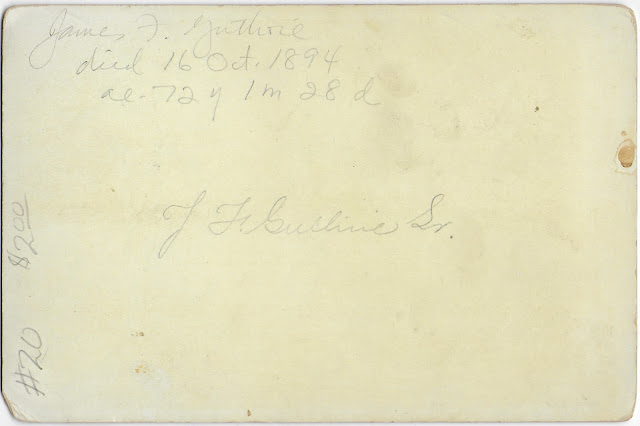 James F. Guthrie
died 16 Oct. 1894
ae. 72 y 1 m 28 d
J F Guthrie Sr.
$2.00
#20